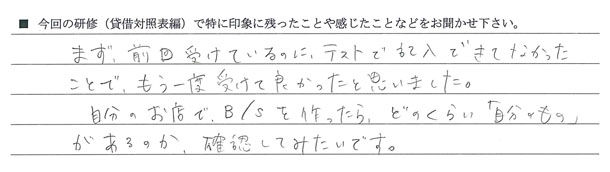 ■ 今回の研修（貸借対照表編）で特に印象に残ったことや感じたことなどをお聞かせ下さい。
まず、前回受けているのに、テストで記入できてなかった
ことで、もう一度受けて良かったと思いました。
自分のお店で、B/Sを作ったら、どのくらい「自分のもの」
があるのか、確認してみたいです。